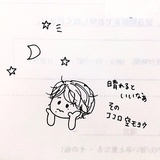 晴れると
いいなぁ
その
ココロ空モヨウ